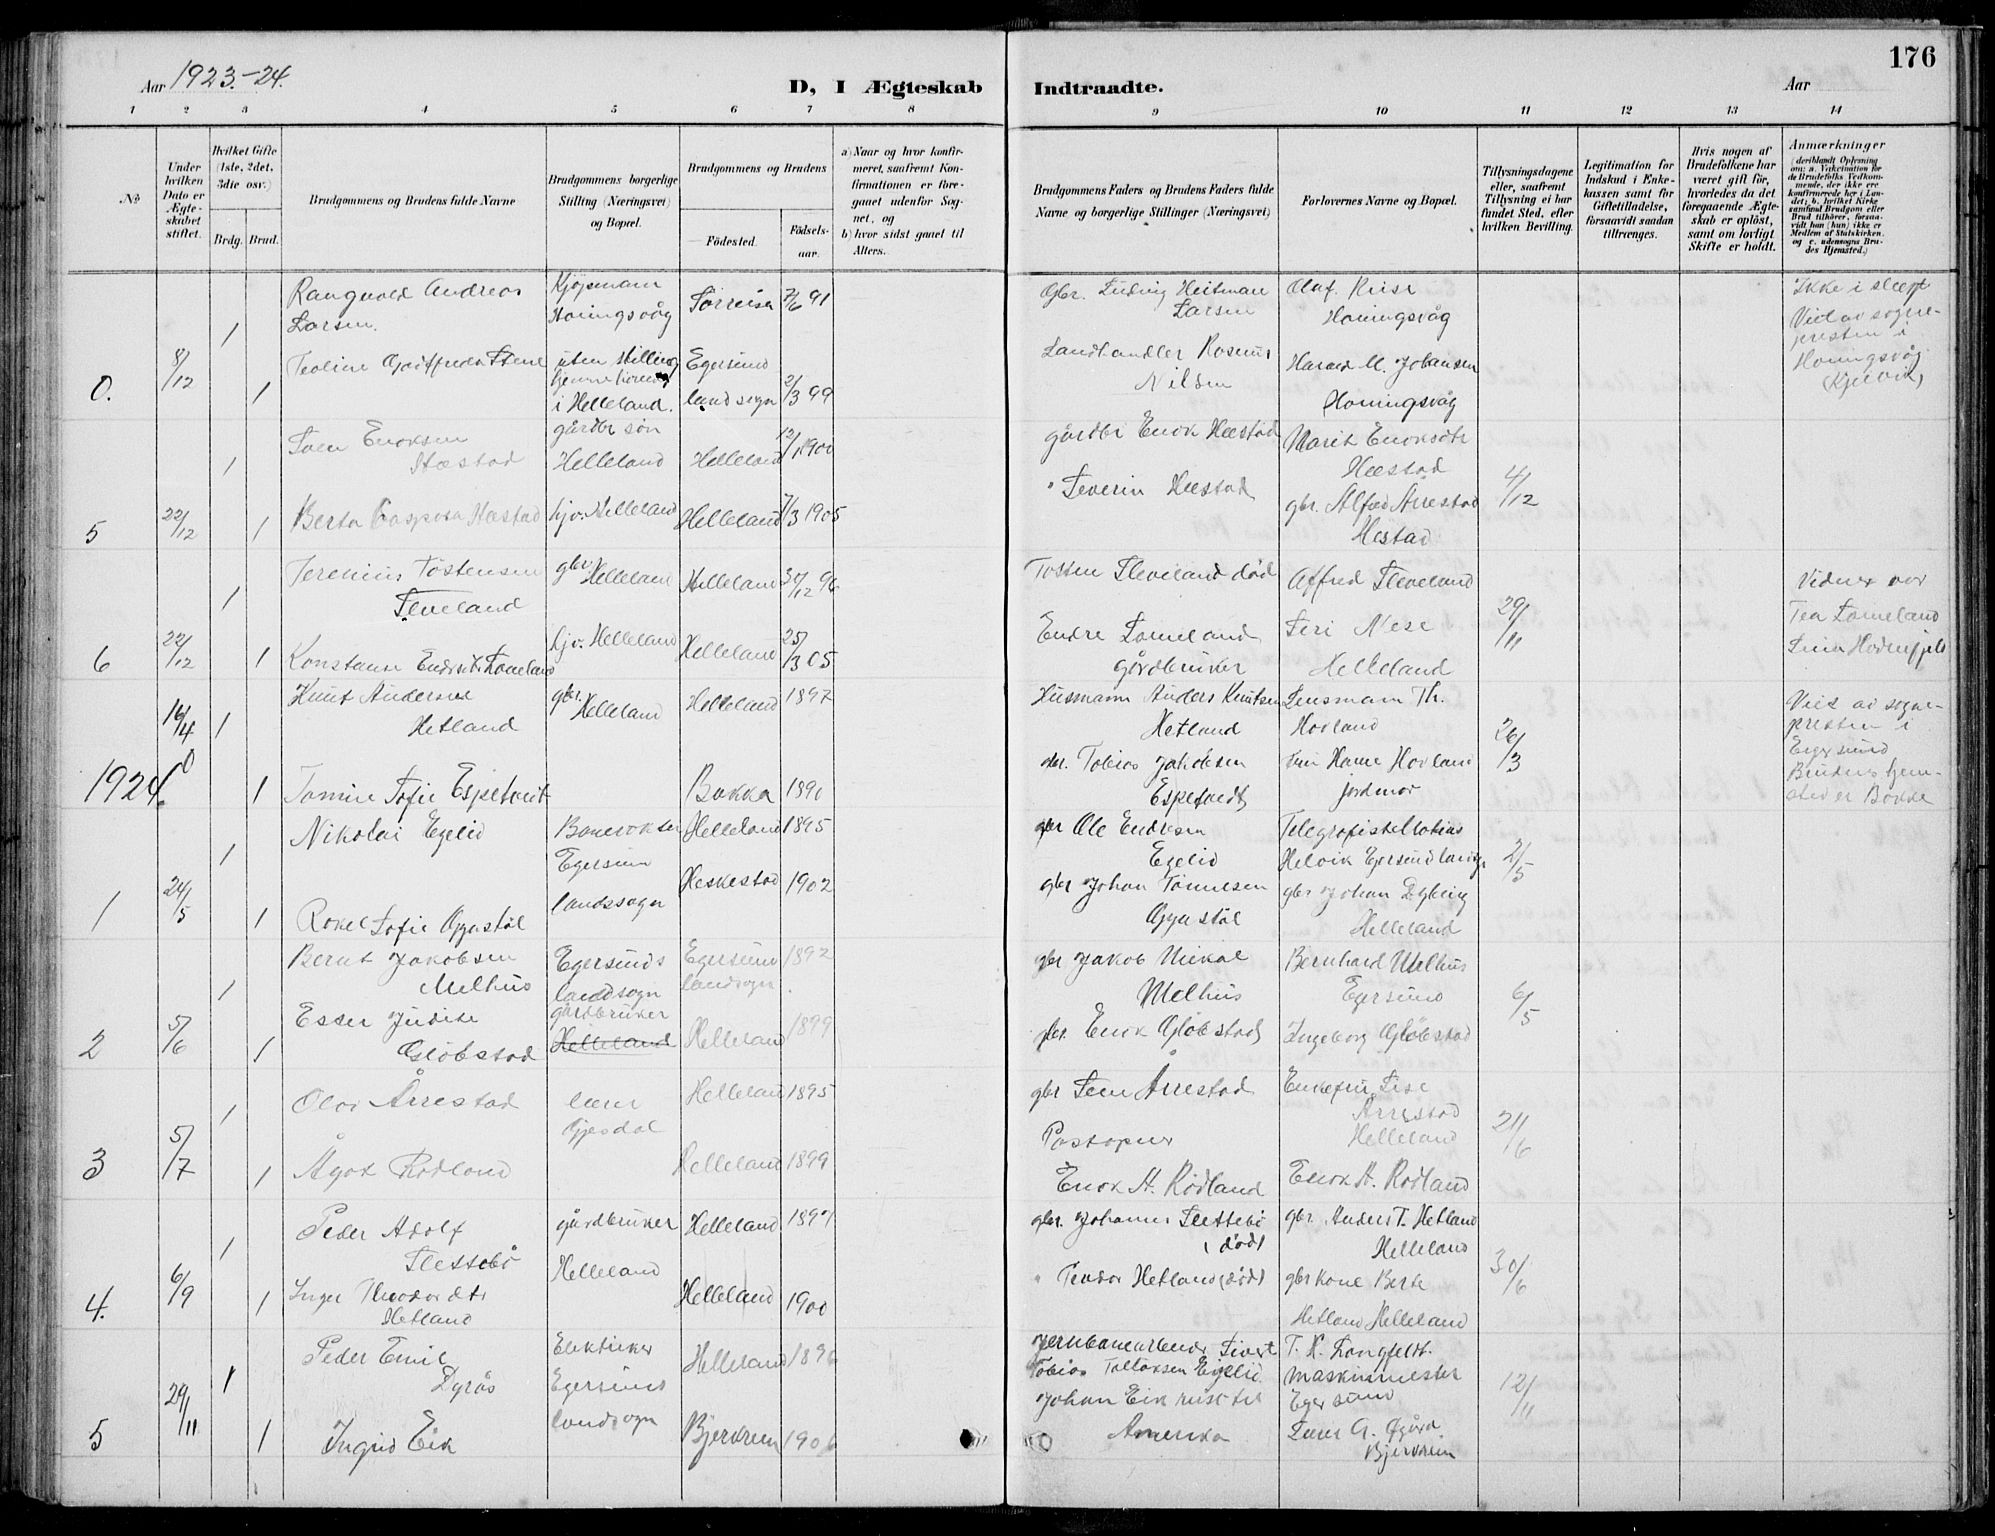 176
Aar 1923.-24.
D, I Ægteskab
Indtraadte.
Aar
1 2 3 4 5 6 7 8 9 10 11 12 13 14
№
Under hvilken Dato er Ægteskabet stiftet.
Hvilket Gifte (1ste, 2det, 3die osv.)
Brdg. Brud.
Brudgommens og Brudens fulde Navne
Brudgommens borgerlige Stilling (Næringsvei) og Bopæl.
Brudgommens og Brudens
Fødested.
Fødselsaar.
a) Naar og hvor konfirmeret, saafremt Konfirmationen er foregaaet udenfor Sognet, og
b) hvor sidst gaaet til Alters.
Brudgommens Faders og Brudens Faders fulde Navne og borgerlige Stillinger (Næringsvei)
Forlovernes Navne og Bopæl.
Tillysningsdagene eller, saafremt Tillysning ei har fundet Sted, efter hvilken Bevilling.
Legitimation for Indskud i Enkekassen samt for Giftetilladelse, forsaavidt saadan tiltrænges.
Hvis nogen af Brudefolkene har været gift før, hvorledes da det foregaaende Ægteskab er opløst, samt om lovligt Skifte er holdt.
Anmærkninger
(deriblandt Oplysning om: a. Vakcination for de Brudefolks Vedkommende, der ikke ere konfirmerede her i Landet; b. hvilket Kirkesamfund Brudgom eller Brud tilhører, forsaavidt han (hun) ikke er Medlem af Statskirken. og c. udensogns Brudes Hjemsted.)
Rangvald Andreas Larsen. Kjøpmann Honingsvåg Sørreisa 7/6 91 Gbr. Ludvig Heitman Larsen Olaf Riise Honingsvåg Ikke i slegt
Viet av sogne-
presten i
Honingsvåg
0. 8/12 1 1 Teoline Godtfreda Stene uten stilling hjemmehørende i Helleland. Egersund landsogn 2/3 99 Landhandler Rasmus Nilsen Harald M. Johansen Honingsvåg
1 Sven Enoksen Hæstad gårdbr søn Helleland Helleland 12/1 1900 gårdbr Enok Hæstad Marit Enoksdtr Hæstad 4/12
5 22/12 1 Berta Caspara Hæstad hjv. Helleland Helleland 7/3 1905 " Severin Hæstad gbr. Alfred Årrestad Hestad
1 Jeremias Tostensen Sleveland gbr Helleland Helleland 30/12 96 Tosten Sleveland død Alfred Sleveland 29/11 Vidner var
Tea Lomeland
6 22/12 1 Konstanse Endresdtr Lomeland hjv. Helleland Helleland 25/3 05 Endre Lomeland gårdbruker Seri Nese Helleland
16/4 1 Knut Andersen Hetland gbr. Helleland Helleland 1897 Husmann Anders Knutsen Hetland Lensmann Th. Hovland 26/3 Viet av sogne-
presten i
Egersund
Brudens hjem-
sted er Bokke
1924. 0 1 Tomine Sofie Espetvedt Bakka 1890 gbr. Tobias Jakobsen Espetvedt Fru Hanne Hovland jordmor
1 Nikolai Egelid Banevokter Egersund landssogn Helleland 1895 gbr Ole Endresen Egelid Telegrafist Mathias Helvik Egersund landsogn 2/5
1 24/5 1 Rakel Sofie Gyastøl Heskestad 1902 gbr Johan Tønnesen Gyastøl gbr Johan Dybing Helleland
1 Bernt Jakobsen Melhus Egersunds landsogn gårdbruker Egersund landsogn. 1892 gbr Jakob Mikal Melhus Bernhard Melhus Egersund 6/5
2 5/6 1 Ester Judite Gløbstad Helleland Helleland 1899 gbr. Enok Gløbstad Ingeborg Gløbstad
1 Olav Årrestad lærer Gjesdal Helleland 1895 gbr Sven Årrestad Enkefru Lise Årrestad Helleland 21/6
3 5/7 1 Ågot Rødland Helleland 1899 Postopner Enok A. Rødland Enok A. Rødland
1 Peder Adolf Slettebø gårdbruker Helleland Helleland 1897 gbr. Johannes Slettebø (død) gbr. Anders T. Hetland Helleland 30/6
4. 6/9 1 Inger Theodordtr Hetland Helleland 1900 " Teodor Hetland (død) gbr kone Berte Hetland Helleland
1 Peder Emil Dyrås Elektriker Egersund landsogn Helleland 1896 Jernbanearbeider Sivert Tobias Tollaksen Egelid T. K. Langfeldt. maskinmester Egersund 12/11
5 29/11 1 Ingrid Eik Bjerkreim 1906 Johan Eik reist til Amerika Bjerkreim